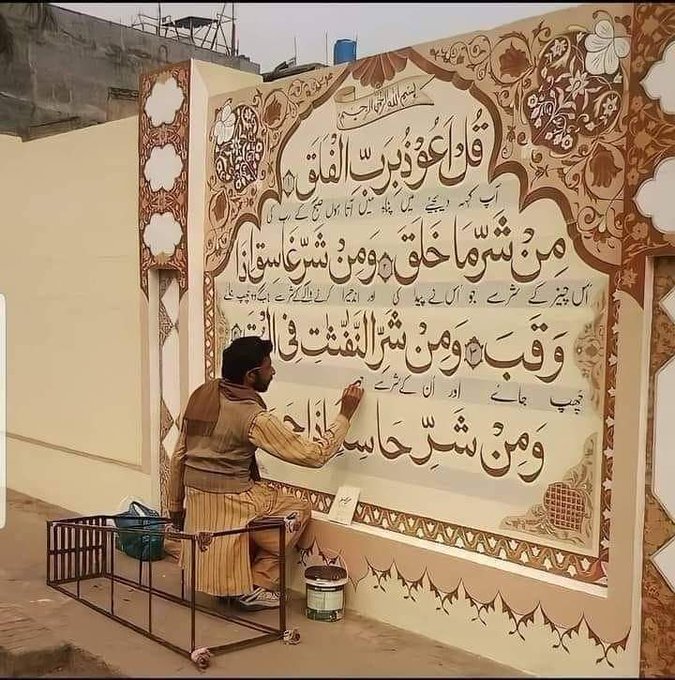 بسم الله الرحمن الرحيم
قُلْ اَعُوْذُ بِرَبِّ الْفَلَقِ ۱
آپ کہہ دیجئے میں پناہ میں آتا ہوں صبح کے رب کی
مِنْ شَرِّ مَا خَلَقَ ۲ وَمِنْ شَرِّ غَاسِقٍ اِذَا
اس چیز کے شر سے جو اس نے پیدا کی اور اندھیرا کرنے والے کے شر سے جب وہ چھپ
وَقَبَ ۳ وَمِنْ شَرِّ النَّفّٰثٰتِ فِی
چھپ جائے اور ان کے شر سے
وَمِنْ شَرِّ حَاسِدٍ اِذَا